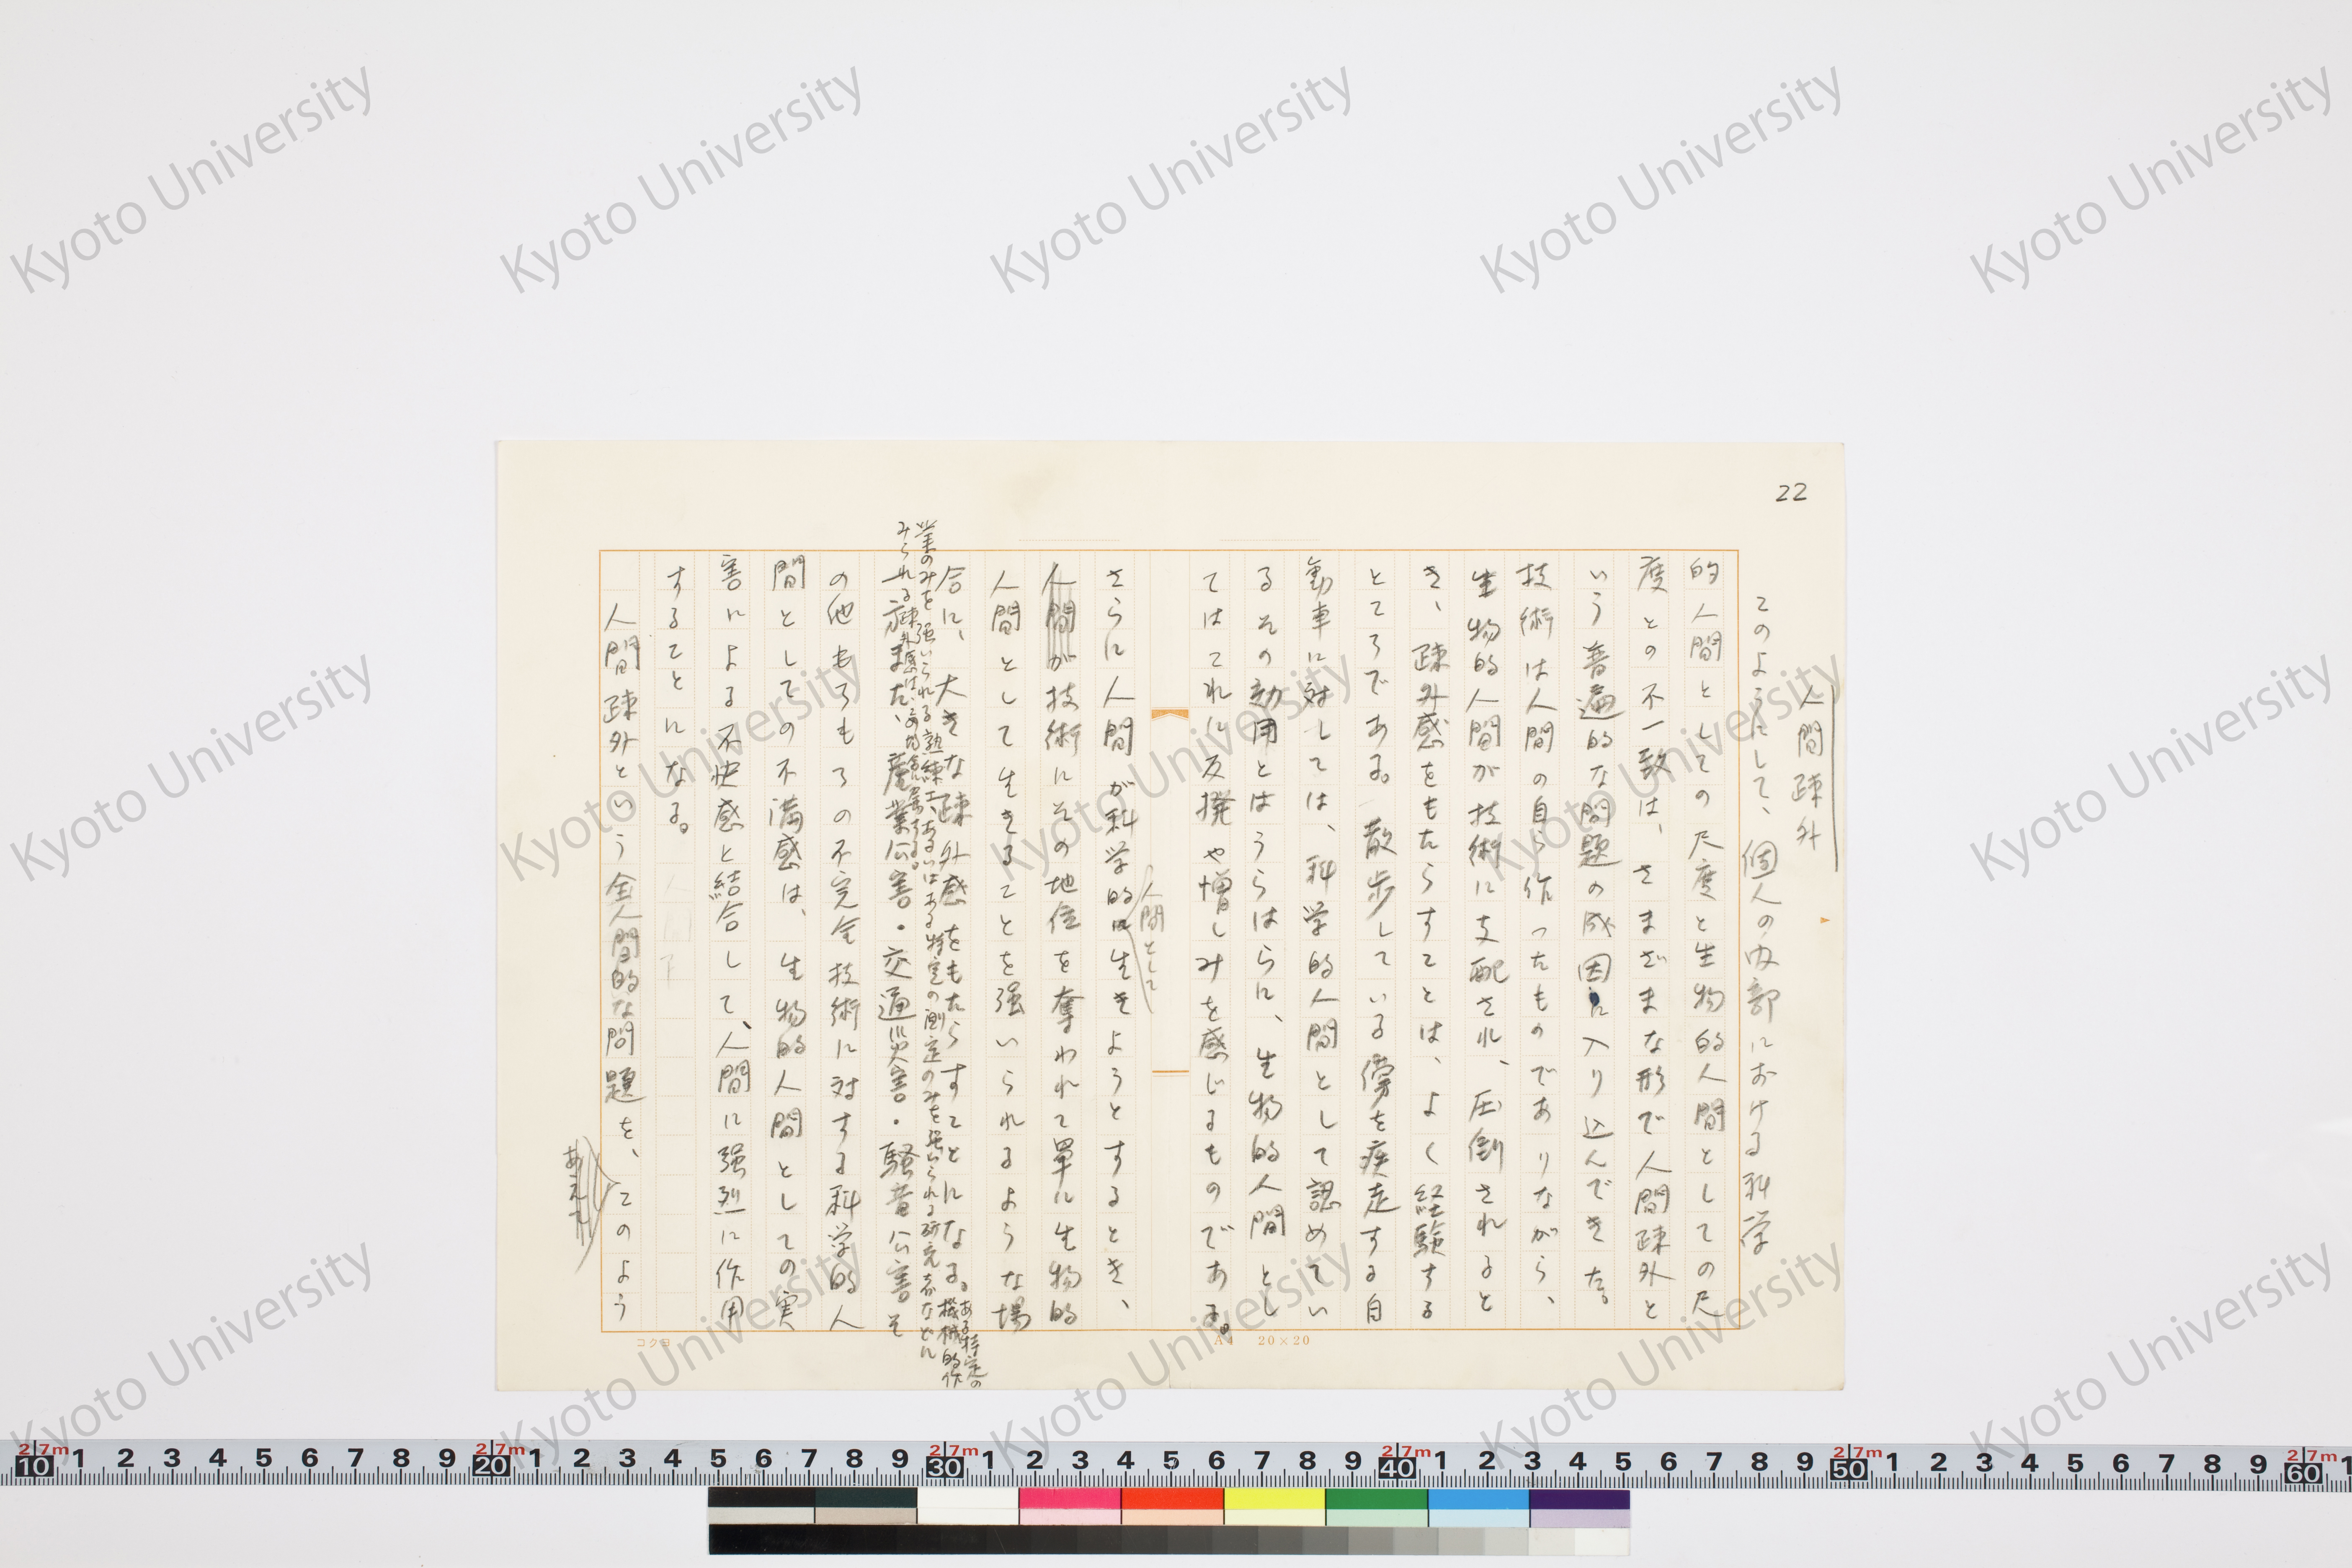 22
人間疎外
このようにして、個人の内部における科学
的人間としての尺度と生物的人間としての尺
度との不一致は、さまざまな形で人間疎外と
いう普遍的な問題の成因に入り込んできた。
技術は人間の自ら作ったものでありながら、
生物的人間が技術に支配され、圧倒されると
き、疎外感をもたらすことは、よく経験する
ところである。散歩している傍を疾走する自
動車に対しては、科学的人間として認めてい
るその効用とはうらはらに、生物的人間とし
てはこれに反撥や憎しみを感じるものである。
人間として
さらに人間が科学的に生きようとするとき、
人間が技術にその地位を奪われて単に生物的
人間として生きることを強いられるような場
合に、大きな疎外感をもたらすことになる。ある特定の
機械的作
業のみを強いられる熟練工、あるいはある特定の測定のみを強いられる研究者などに
みられる疎外感は、
また、産業公害・交通災害・騒音公害そ
の他もろもろの不完全技術に対する科学的人
間としての不満感は、生物的人間としての実
害による不快感と結合して、人間に強烈に作用
することになる。
人間疎外という全人間的な問題を、このよう
コクヨ
A4 20×20
Kyoto University